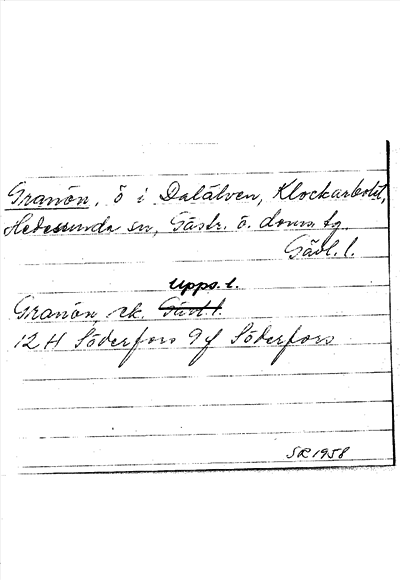 Granön, ö i Dalälven, Klockarbolet,
Hedesunda sn, Gästr. ö. doms tg.
Gävl. l.
Upps. l.
Granön rk. Gävl. l.
12 H Söderfors 9f Söderfors
SR 1958